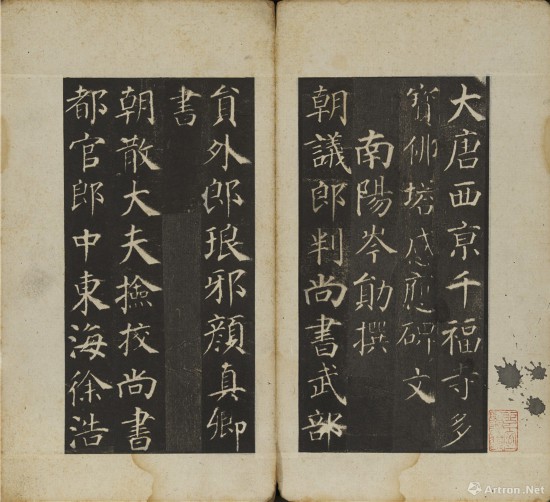 大唐西京千福寺多
寶佛塔感應碑文
南陽岑勛撰
朝議郎判尚書武部
貟外郎琅邪顔真卿
書
朝散大夫撿校尚書
都官郎中東海徐浩
Artron.Net